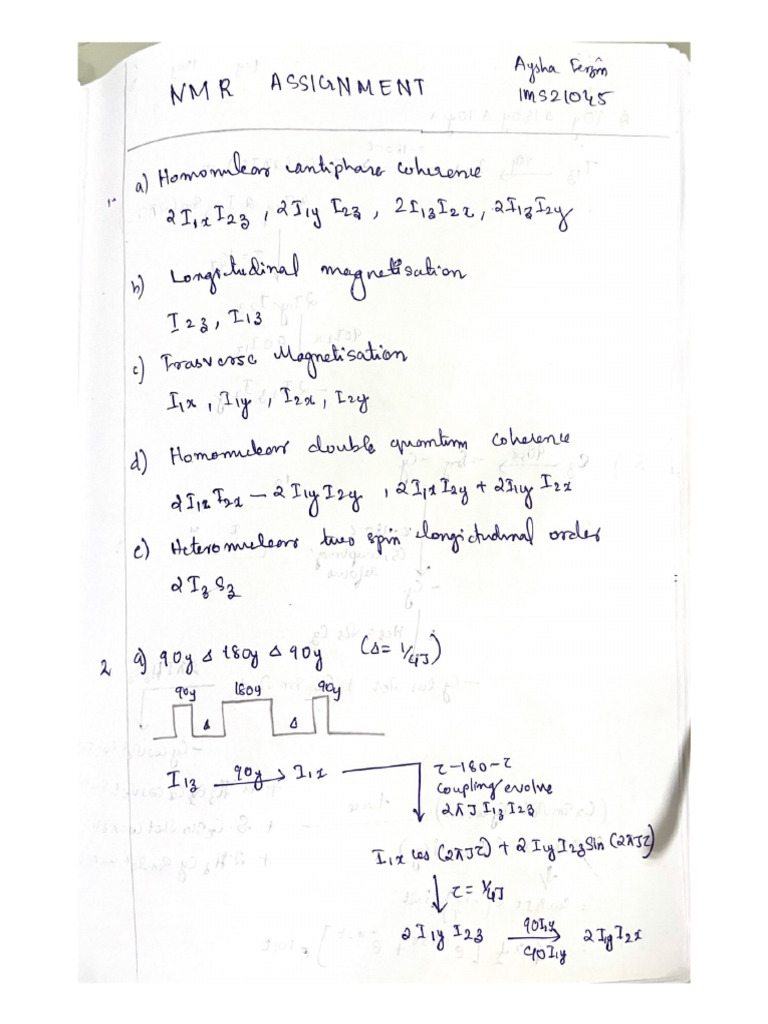 NMR ASSIGNMENT
Aysha Ferzin
IMS21045
1. a) Homonuclear antiphase coherence
2I₁ₓI₂z, 2I₁yI₂z, 2I₁zI₂x, 2I₁zI₂y
b) Longitudinal magnetisation
I₂z, I₁z
c) Trasverse Magnetisation
I₁x, I₁y, I₂x, I₂y
d) Homonuclear double quantum coherence
2I₁xI₂x - 2I₁yI₂y, 2I₁xI₂y + 2I₁yI₂x
e) Heteronuclear two spin longitudinal order
2IzSz
2 a) 90y Δ 180y Δ 90y (Δ = 1/4J)
90y 180y 90y
Δ Δ
I₁z 90y → I₁x
τ-180-τ
coupling evolve
2πJ I₁z I₂z
I₁x cos (2πJτ) + 2I₁yI₂z Sin (2πJτ)
↓ τ = 1/4J
2I₁yI₂z → 2I₁yI₂x
90I₁y